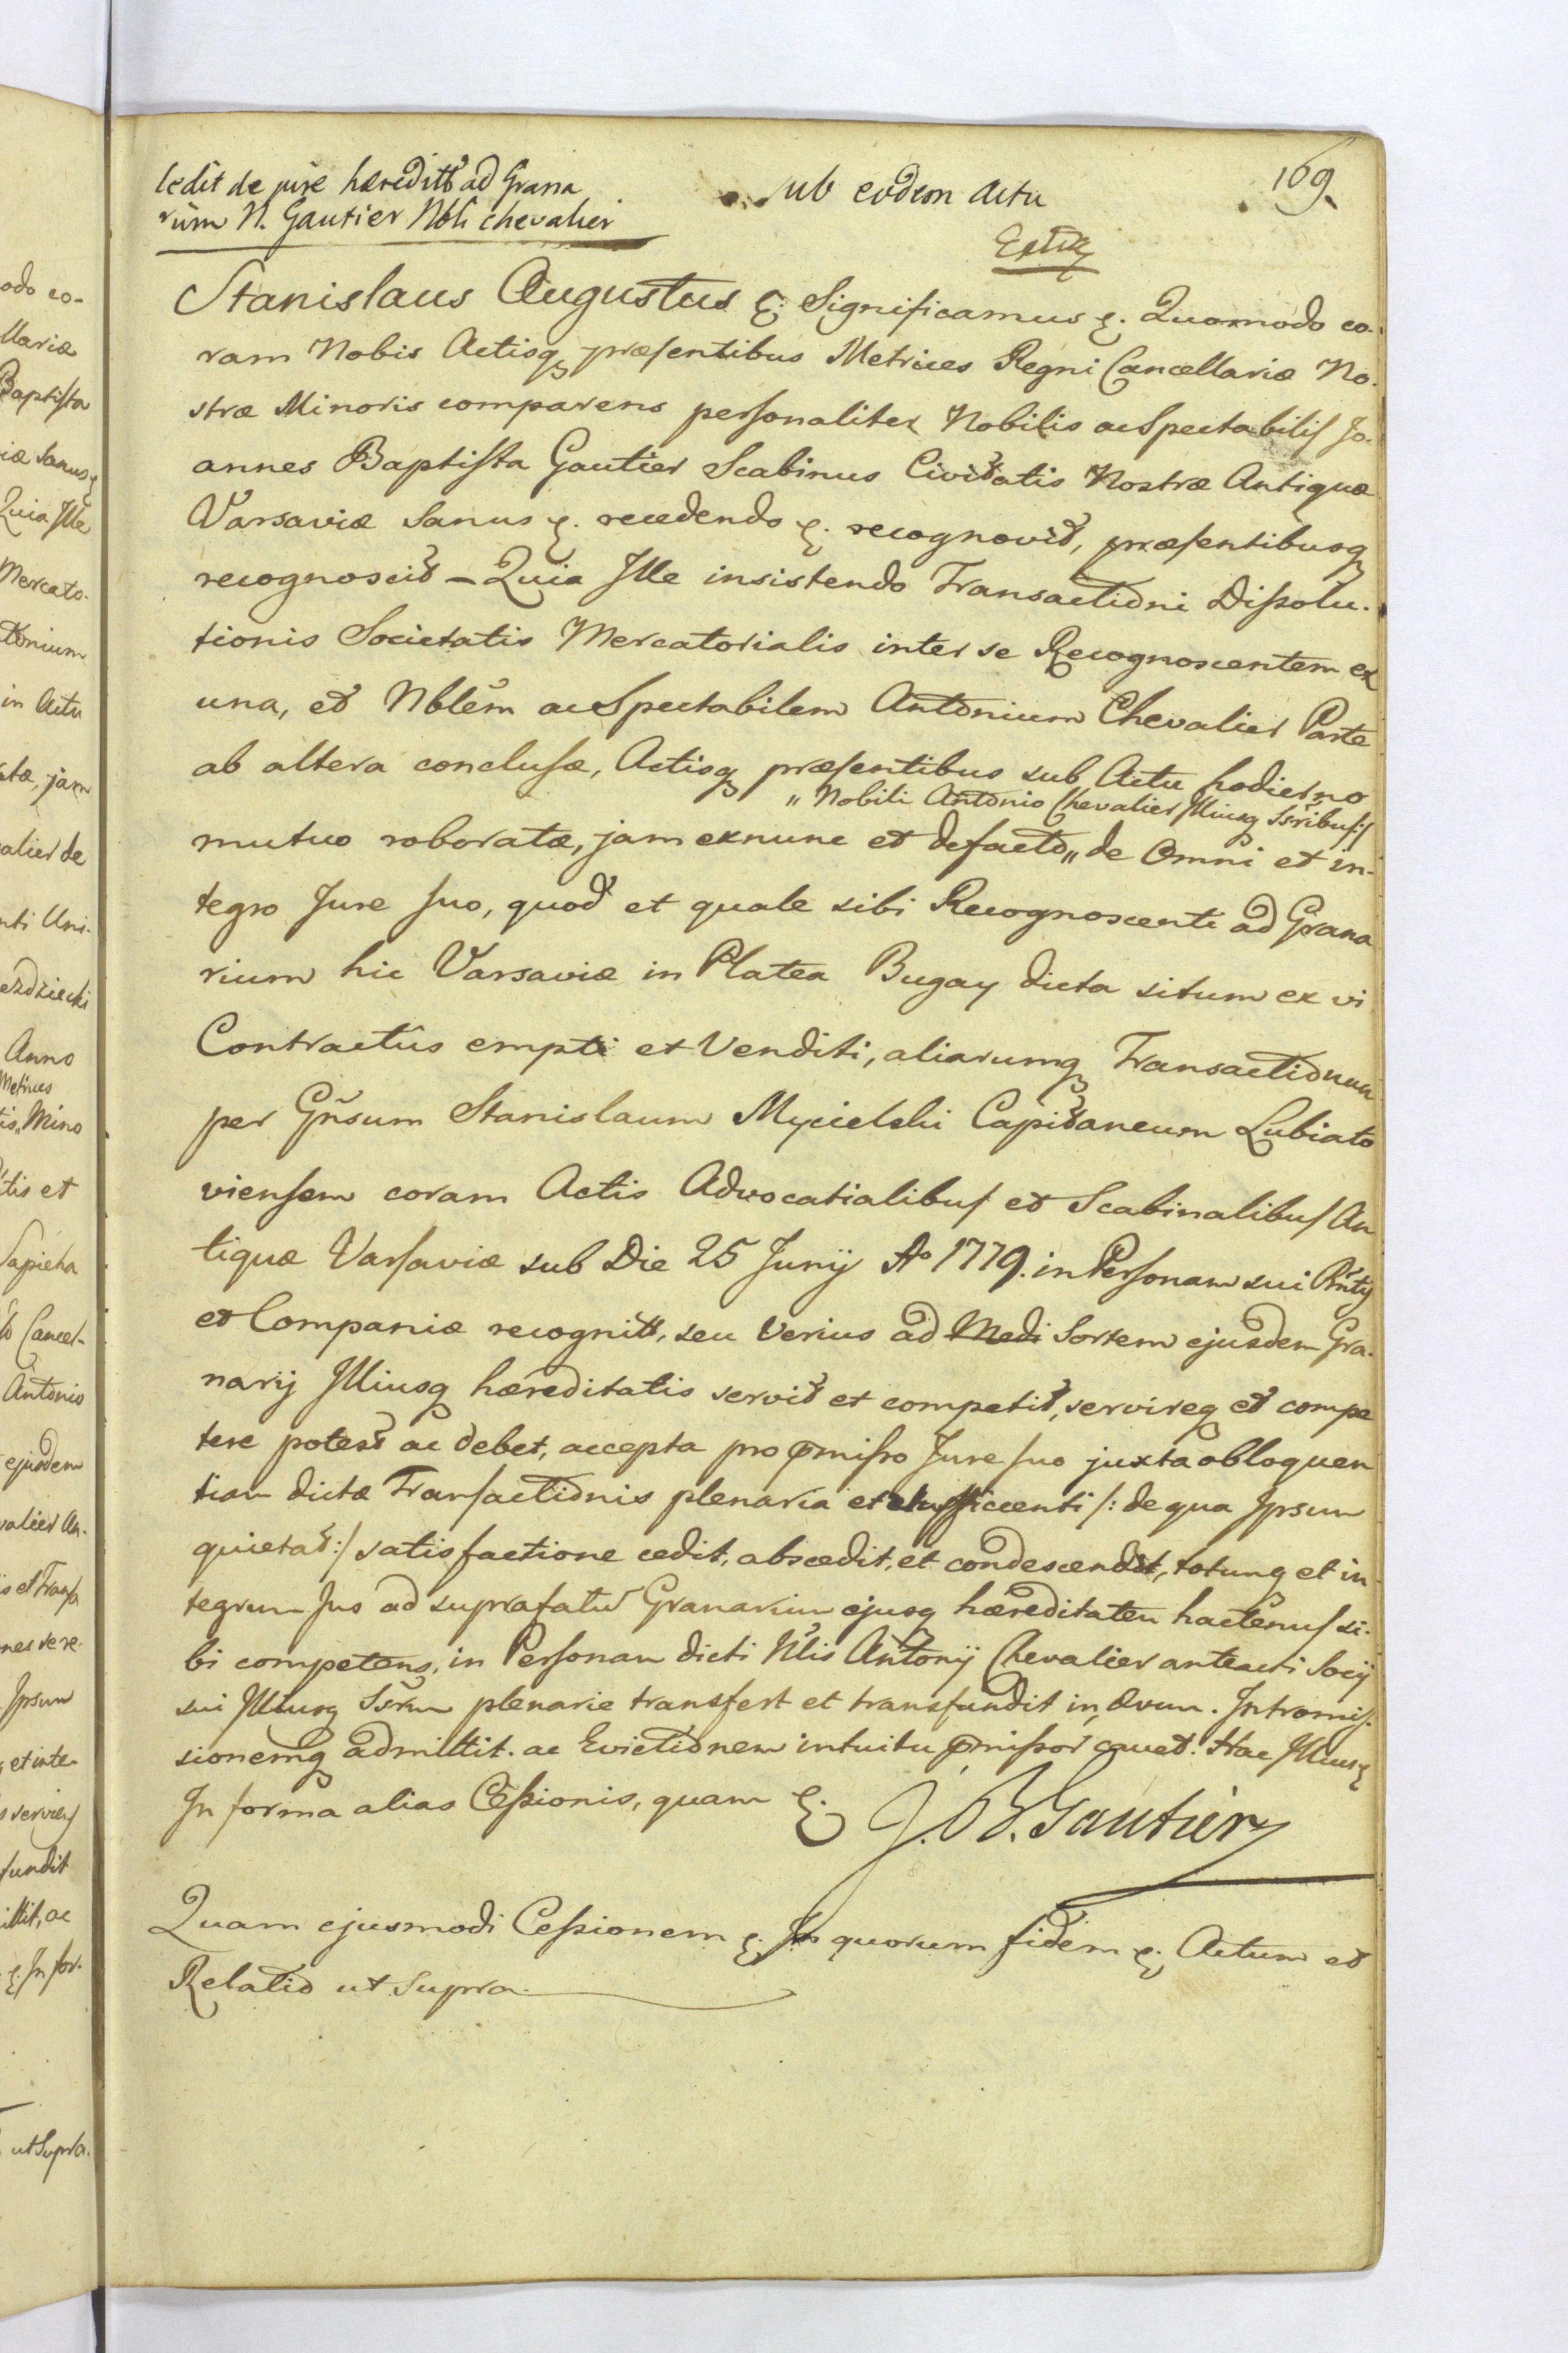 Cedit de jure haeredittis ad Grana
rium N. Gautier Nbli Chevalier
Sub eodem Actu
169.
Extr
Stanislaus Augustus &. Significamus &. Quomodo co-
ram Nobis Actisq praesentibus Metrices Regni Cancellariae No-
strae Minoris comparens personaliter Nobilis ac Spectabilis Jo-
annes Baptista Gautier Scabinus Civitatis Nostrae Antiquae
Varsaviae Sanus &. recedendo &. recognovit, praesentibusq
recognoscit – Quia Ille insistendo Transactioni Dissolu-
tionis Societatis Mercatorialis inter se Recognoscentem ex
una, et Nblem ac Spectabilem Antonium Chevalier Parte
ab altera conclusae, Actisq praesentibus sub Actu hodierno
" Nobili Antonio Chevalier Illiusq Ssribus:/
mutuo roboratae, jam exnunc et defacto " de Omni et in-
tegro Jure suo, quod et quale sibi Recognoscenti ad Grana
rium hic Varsaviae in Platea Bugay dicta situm ex vi
Contractus empti et Venditi, aliarumq Transactionum
per Gnsum Stanislaum Mycielski Capitaneum Lubiato
viensem coram Actis Advocatialibus et Scabinalibus An
tiquae Varsaviae sub Die 25 Junij Ao 1779. in Personam sui Rntis
et Companiae recognitt, seu verius ad Medi Sortem ejusdem Gra-
narij Illiusq haereditatis servit et competit, servireq et compe
tere potest ac debet, accepta pro pmisso Jure suo juxta obloquen
tiam dictae Transactionis plenaria et sufficienti /: de qua Ipsum
quietat:/ satisfactione cedit, abscedit, et condescendit, totumq et in
tegrum Jus ad suprafatum Granarium ejusq haereditatem hactenus si-
bi competens, in Personam dicti Nlis Antonij Chevalier anteacti Socij
sui Illiusq Ssrum plenarie transfert et transfundit in aevum. Intromis-
sionemq admittit. ac Evictionem intuitu pmissor cavet. Hac Illiusq
In forma alias Cessionis, quam &.
J. B. Gautier
Quam ejusmodi Cessionem &. In quorum fidem &. Actum et
Relatio ut Supra.
odo co-
llariae
Baptista
iae Sanus &
Quia Ille
Mercato-
tonium
in Actu
atae, jam
alier de
nti Uni-
ezdziecki
Anno
Metrices
is, Mino
itis et
Sapieha
Cancel-
Antonio
ejusdem
valier An-
is et Transa
nes se re-
Ipsum
q et inte-
s serviens
fundit
ittit, ac
&. In for-
ut Supra.